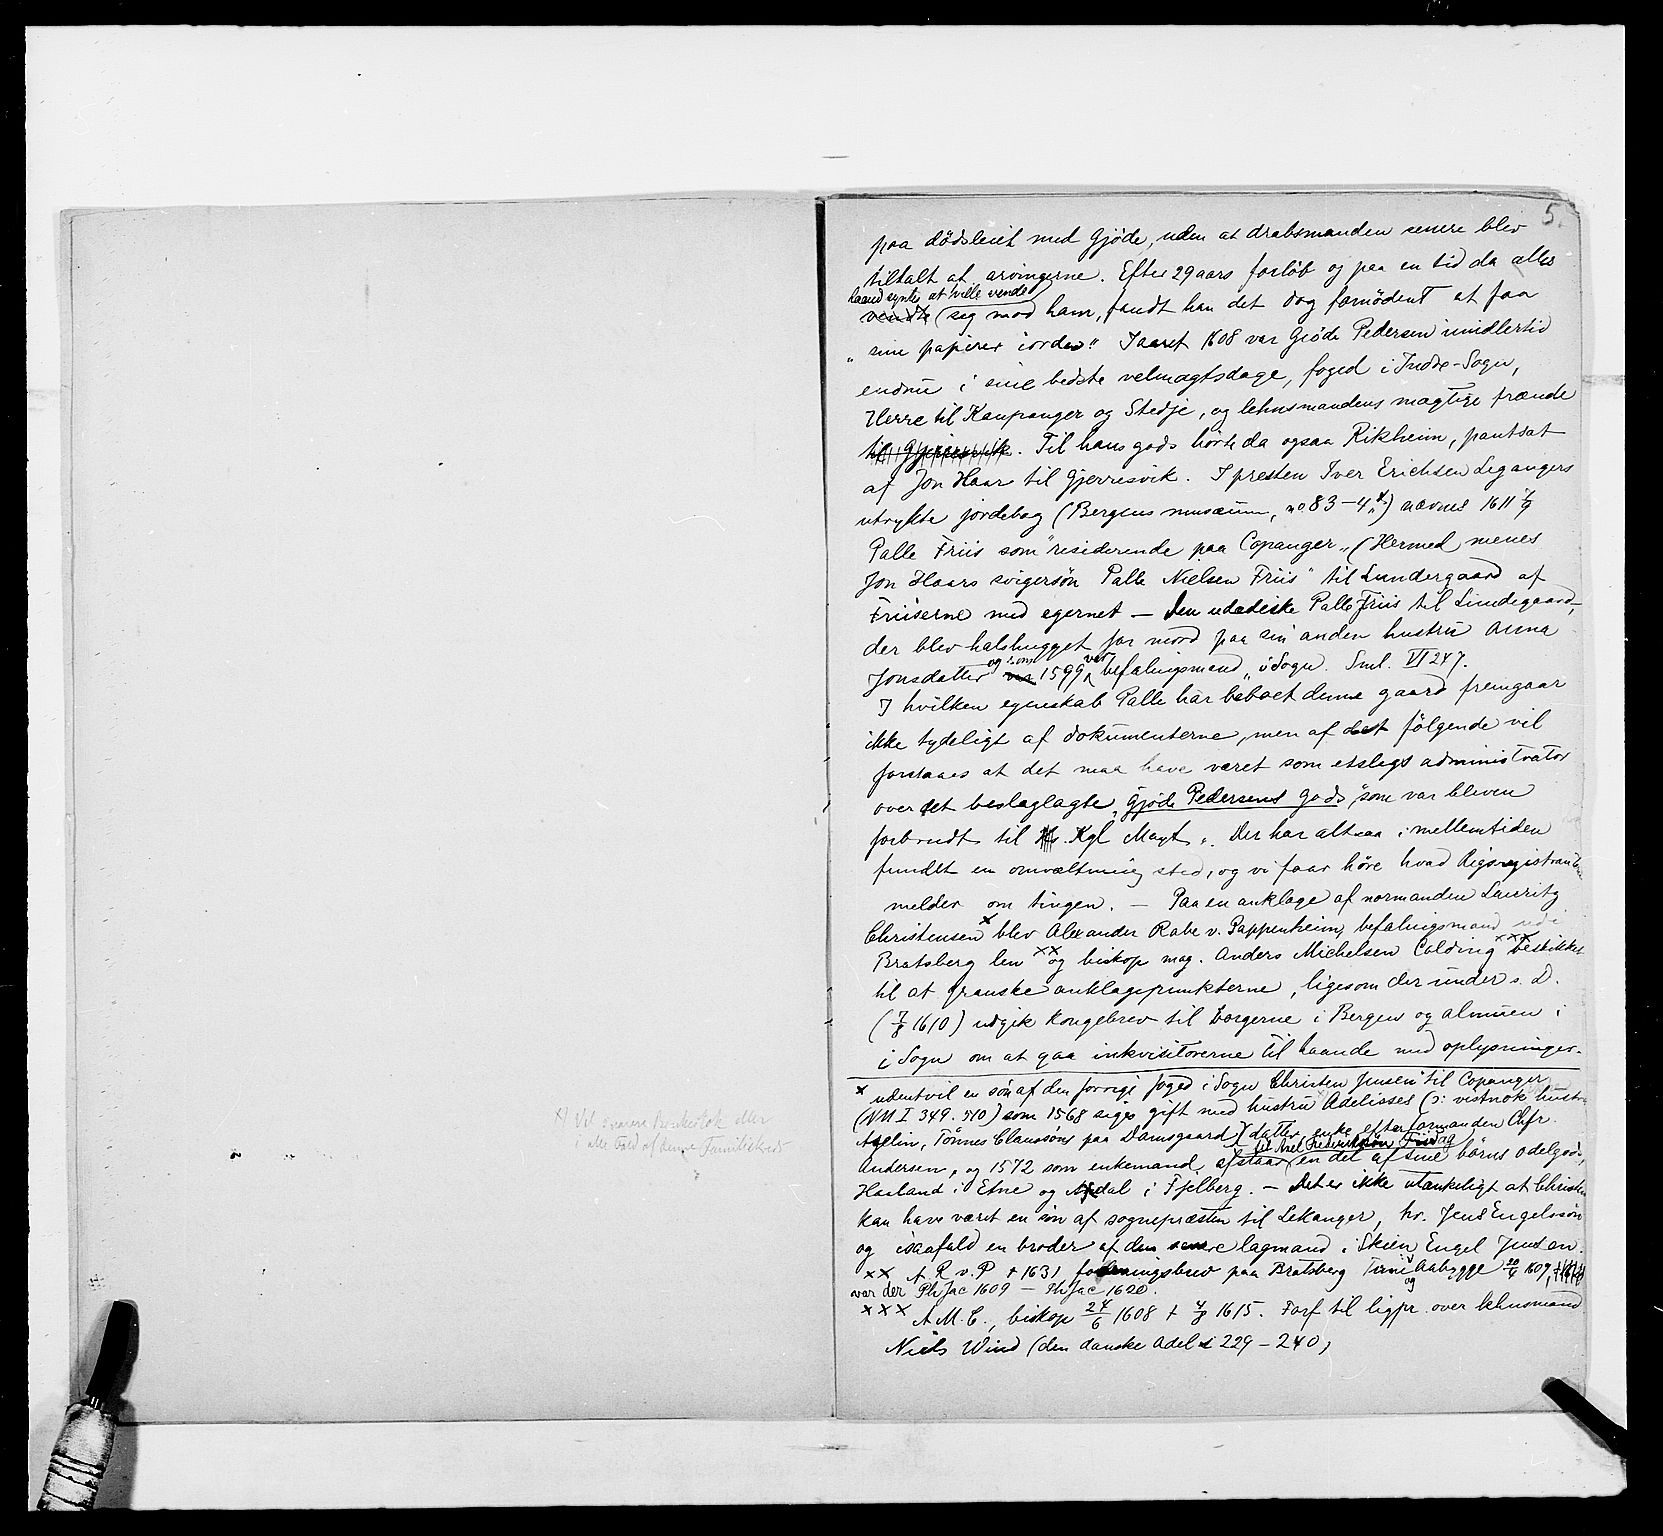 5.
paa dödsleiet med Gjöde, uden at drabsmanden senere blev
tiltalt af arvingerne. Efter 29 aars forlöb og paa en tid da alles
haand syntes at ville vende
vendte (sig mod ham, fandt han det dog fornödent at faa
„sine papirer iorden“ I aaret 1608 var Giöde Pedersen imidlertid
endnu i sine bedste velmagtsdage, foged i Indre-Sogn,
Herre til Kaupanger og Stedje, og lehnsmandens mægtige frænde
til Gjerresvik. Til hans gods hörte da ogsaa Rikheim, pantsat
af Jon Haar til Gjerresvik. I presten Iver Erichsen Legangers
utrykte jordebog (Bergens musæum, no 83-4) nævnes 1611
Palle Friis som "residerende paa Copanger„ (Hermed menes
Jon Haars svigersön Palle Nielsen Friis" til Lundergaard af
Friiserne med egernet — Den udædiske Palle Friis til Lundegaard,
der blev halshugget for mord paa sin anden hustru Anna
og som var
Jonsdatter var 1599 befalingsmand „i Sogn. Sml. VI 247.
I hvilken egenskab Palle har beboet denne gaard fremgaar
ikke tydeligt af dokumenterne, men af det fölgende vil
forstaaes at det maa have været som etslags administrator
over det beslaglagte „Gjöde Pedersens Gods, "som var bleven
forbrudt til Kgl Mayt„. Der har altsaa i mellemtiden
fundet en omvæltning sted, og vi faar höre hvad Rigsregistranterne
melder om tingen. — Paa en anklage af normanden Lauritz
Christensen x blev Alexander Rabe v. Pappenheim, befalingsmand udi
Bratsberg len xx og biskop mag. Anders Michelsen Colding xxx beskikket
til at granske anklagepunkterne, ligesom der under s. D.
(7/8 1610) udgik Kongebrev til borgerne i Bergen og almuen i
i Sogn om at gaa inkvisitorerne til haande med oplysninger.
x udentvil en sön af den forrige foged i Sogn Christen Jensen til Copanger
(NM I 349. 510) som 1568 siges gift med hustru Adelisses (ɔ: vistnok hustru
Adelin, Tönnes Claussöns paa Damsgaard) (datter, enke efter formanden Chfr.
til Axel Frederiksön
Andersen, og 1572 som enkemand, afstaar en del af sine börns Odelgods,
Haaland i Etne og dal i Fjelberg. — Det er ikke utænkeligt at Christen
kan have været en sön af sognepræsten til Lekanger, hr. Jens Engelssön
og isaafald en broder af den senere lagmand i Skien Engel Jensen.
xx A R v. P + 1631, forleningsbrev paa Bratsberg og Aabygge 1609,
var der Ph Jac 1609 — Ph Jac 1620.
xxx A M. C., biskop 24/6 1608 + 4/8 1615. Forf til ligpr. over lehnsmand
Niels Wind (den danske Adel 229-240)
x) Vil svare Benkestok eller
i alle Fald af denne Familiekreds